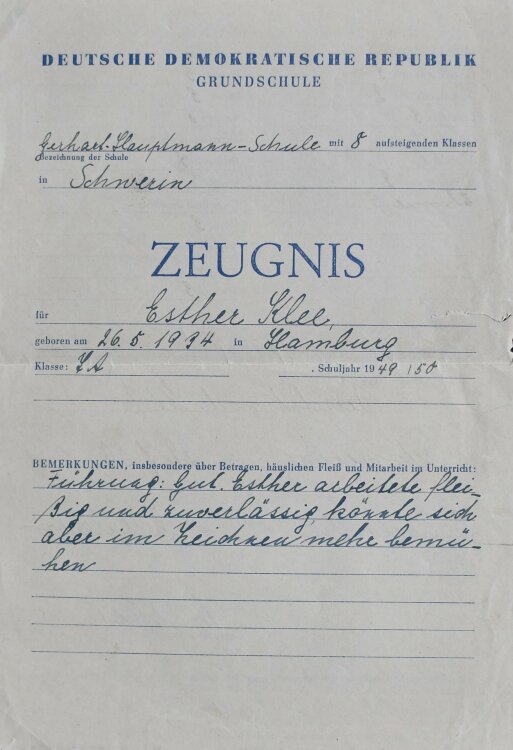 DEUTSCHE DEMOKRATISCHE REPUBLIK
GRUNDSCHULE
Gerhart-Hauptmann-Schule mit 8 aufsteigenden Klassen
Bezeichnung der Schule
in Schwerin
ZEUGNIS
für Esther Klee,
geboren am 26.5.1934 in Hamburg
Klasse: 7A . Schuljahr 1949/50
BEMERKUNGEN, insbesondere über Betragen, häuslichen Fleiß und Mitarbeit im Unterricht:
Führung: Gut. Esther arbeitete flei-
ßig und zuverlässig, könnte sich
aber im Zeichnen mehr bemü-
hen